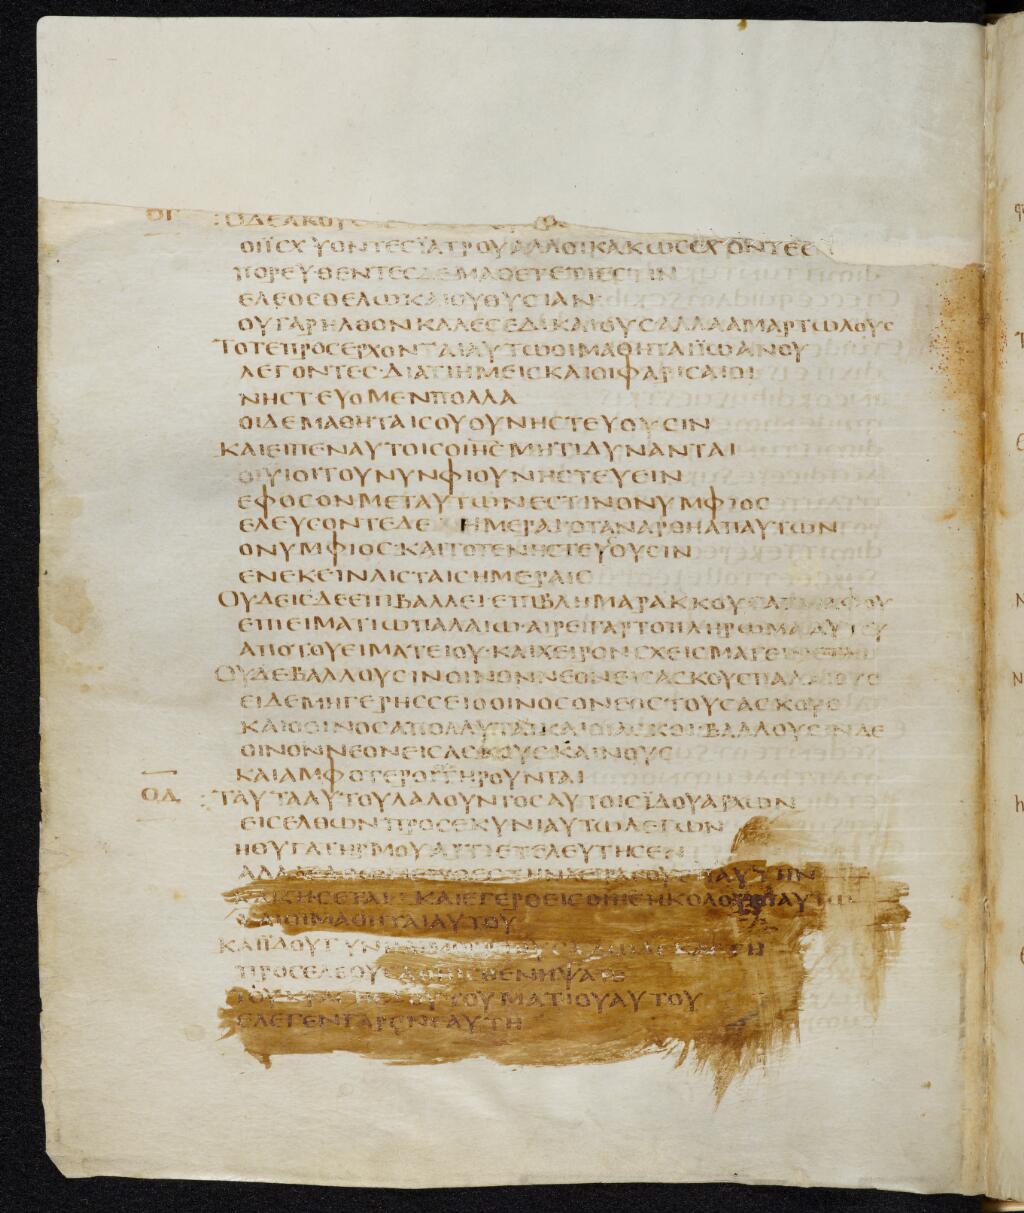 ΟΓ ΟΔΕΑΚΟΥC
ΟΙΪCΧΥΟΝΤΕCΪΑΤΡΟΥΑΛΛΟΙΚΑΚΩCΕΧΟΝΤΕC
ΠΟΡΕΥΘΕΝΤΕCΔΕΜΑΘΕΤΕΤΙΕCΤΙΝ
ΕΛΕΟCΘΕΛΩΚΑΙΟΥΘΥCΙΑΝ
ΟΥΓΑΡΗΛΘΟΝΚΑΛΕCΕΔΙΚΑΙΟΥCΑΛΛΑΑΜΑΡΤΩΛΟΥC
ΤΟΤΕΠΡΟCΕΡΧΟΝΤΑΙΑΥΤΩΟΙΜΑΘΗΤΑΙΪΩΑΝΟΥ
ΛΕΓΟΝΤΕC·ΔΙΑΤΙΗΜΕΙCΚΑΙΟΙΦΑΡΙCΑΙΟΙ
ΝΗCΤΕΥΟΜΕΝΠΟΛΛΑ
ΟΙΔΕΜΑΘΗΤΑΙCΟΥΟΥΝΗCΤΕΥΟΥCΙΝ
ΚΑΙΕΙΠΕΝΑΥΤΟΙCΟΙΗCΜΗΤΙΔΥΝΑΝΤΑΙ
ΟΙΥΙΟΙΤΟΥΝΥΝΦΙΟΥΝΗCΤΕΥΕΙΝ
ΕΦΟCΟΝΜΕΤΑΥΤΩΝΕCΤΙΝΟΝΥΜΦΙΟC
ΕΛΕΥCΟΝΤΕΔΕ ΗΜΕΡΑΙΟΤΑΝΑΡΘΗΑΠΑΥΤΩΝ
ΟΝΥΜΦΙΟC·ΚΑΙΤΟΤΕΝΗCΤΕΥΟΥCΙΝ
ΕΝΕΚΕΙΝΑΙCΤΑΙCΗΜΕΡΑΙC
ΟΥΔΕΙCΔΕΕΠΙΒΑΛΛΕΙΕΠΙΒΛΗΜΑΡΑΚΚΟΥC
ΕΠΙΕΙΜΑΤΙΩΠΑΛΑΙΩ·ΑΙΡΕΙΓΑΡΤΟΠΛΗΡΩΜΑΑΥΤΟΥ
ΑΠΟΤΟΥΕΙΜΑΤΕΙΟΥ·ΚΑΙΧΕΙΡΟΝCΧΕΙCΜΑΓΕΙΝΕΤΑΙ
ΟΥΔΕΒΑΛΛΟΥCΙΝΟΙΝΟΝΝΕΟΝΕΙCΑCΚΟΥCΠΑΛΑΙΟΥC
ΕΙΔΕΜΗΓΕΡΗCCΕΙΟΟΙΝΟCΟΝΕΟCΤΟΥCΑCΚΟΥC
ΚΑΙΟΟΙΝΟCΑΠΟΛΛΥΤΑΙΚΑΙΟΙΑCΚΟΙ·ΒΑΛΛΟΥCΙΝΔΕ
ΟΙΝΟΝΝΕΟΝΕΙCΑCΚΟΥCΚΑΙΝΟΥC
ΚΑΙΑΜΦΟΤΕΡΟΙΤΗΡΟΥΝΤΑΙ
ΟΔ ΤΑΥΤΑΑΥΤΟΥΛΑΛΟΥΝΤΟCΑΥΤΟΙCΪΔΟΥΑΡΧΩΝ
ΕΙCΕΛΘΩΝΠΡΟCΕΚΥΝΙΑΥΤΩΛΕΓΩΝ
ΗΘΥΓΑΤΗΡΜΟΥΑΡΤΙΕΤΕΛΕΥΤΗCΕΝ
ΑΛΛΑ ΕΠΙΘΕCΤΗΝΧΕΙΡΑCΟΥΕΠΑΥΤΗΝ
ΚΑΙΖΗCΕΤΑΙ ΚΑΙΕΓΕΡΘΕΙCΟΙΗCΗΚΟΛΟΥΘΙΑΥΤΩ
ΚΑΙΟΙΜΑΘΗΤΑΙΑΥΤΟΥ
ΚΑΙΪΔΟΥΓΥΝΗ
ΠΡΟCΕΛΘΟΥCΑΟΠΙCΘΕΝΗΨΑΤΟ
ΤΟΥΚΡΑCΠΕΔΟΥΤΟΥΕΙΜΑΤΙΟΥΑΥΤΟΥ
ΕΛΕΓΕΝΓΑΡΕΝΕΑΥΤΗ